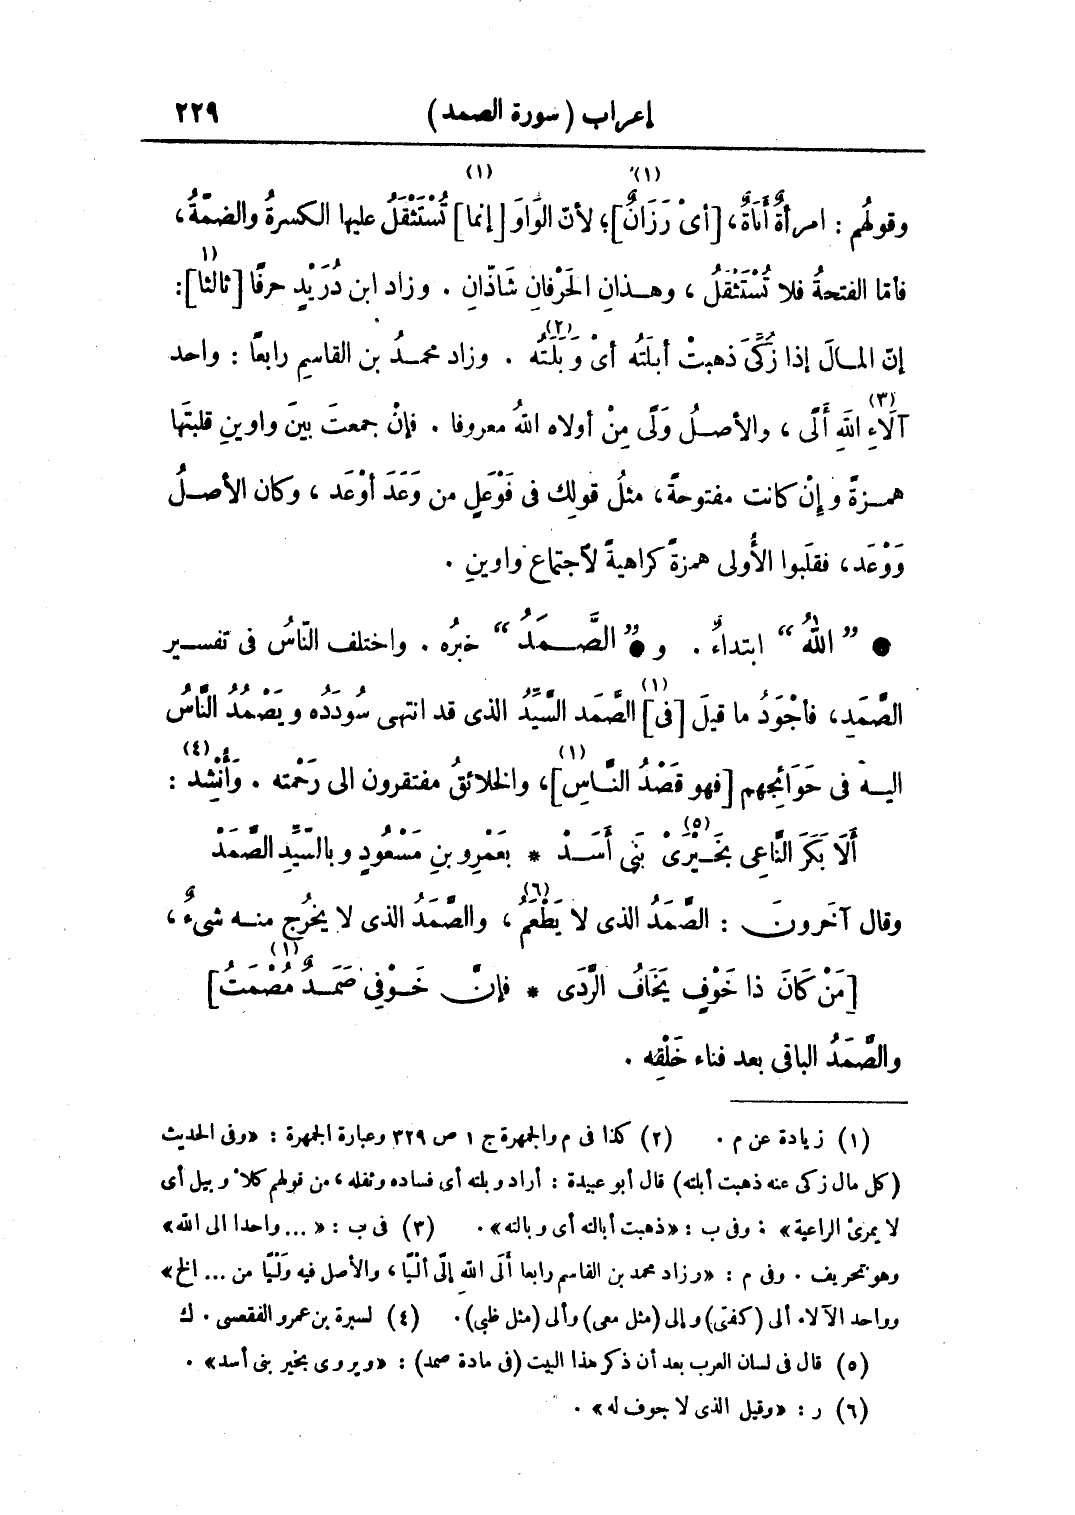 إعراب (سورة الصمد) ٢٢٩
(١) (١)
وقولُهم : امرأةٌ أَنَاةٌ، [أىْ رَزَانٌ]؛ لأنّ الوَاوَ [إنما] تُسْتَثْقَلُ عليها الكسرةُ والضمّةُ،
فأمّا الفتحةُ فلا تُسْتَثْقَلُ ، وهـذانِ الحَرْفانِ شَاذّانِ . وزاد ابن دُرَيْدٍ حرفًا [ثالثا](١) :
إنّ المـالَ إذا زُكِّىَ ذهبتْ أبلَتُه أىْ وَبَلَتُه(٢) . وزاد محمدُ بن القاسِم رابعًا : واحد
آلَاءِ(٣) اللهِ أَلًى ، والأصـلُ وَلًى مِنْ أولاه اللهُ معروفا . فإنْ جمعتَ بينَ واوينِ قلبتَها
همـزةً و إنْ كانت مفتوحةً، مثلُ قولِك فى فَوْعَلٍ من وَعَدَ أوْعَد ، وكان الأصـلُ
وَوْعَد، فقلَبوا الأُولى همزةً كراهيةً لٱجتماع واوينِ .
● ”اللهُ“ ابتداءٌ . و ●”الصَّـمَدُ“ خبرُه . واختلف النّاسُ فى تفسـير
الصَّمَدِ، فأجْوَدُ ما قيلَ [فى](١) الصَّمَد السَّيِّدُ الذى قد انتهى سُودَدُه ويَصْمُدُ النَّاسُ
اليـه فى حَوَائِجهم [فهو قَصْدُ النَّـاسِ](١)، والخلائقُ مفتقرون الى رَحْمَته . وَأُنْشِد(٤) :
أَلَا بَكَرَ النَّاعِى بَخَيْرَىْ(٥) بَنِى أَسَـدْ * بعَمْرِو بنِ مَسْعُودٍ وبالسَّيِّدِ الصَّمَدْ
وقال آخَرونَ : الصَّمَدُ الذى لا يَطْعَمُ(٦) ، والصَّمَدُ الذى لا يخرُج منـه شىءٌ ،
[مَنْ كَانَ ذا خَوْفٍ يَخَافُ الرَّدَى * فإنَّ خَـوْفِى صَمَـدٌ مُصْمَتُ](١)
والصَّمَدُ الباقى بعد فناء خَلْقِه .
(١) زيادة عن م . (٢) كذا فى م والجمهرة ج ١ ص ٣٢٩ وعبارة الجمهرة : «وفى الحديث
(كل مال زكى عنه ذهبت أبلته) قال أبو عبيدة : أراد وبلته أى فساده وثقله ، من قولهم كلأ وبيل أى
لا يمرئ الراعية» : وفى ب : «ذهبت أبالته أى وبالته» . (٣) فى ب : « ... واحدا الى الله»
وهو تحريف . وفى م : «وزاد محمد بن القاسم رابعا أَلَى اللهِ إلىّ ألْيًا ، والأصل فيه ولَيْا من ... الخ»
وواحد الآلاء ألى (كفتى) وإلى (مثل معى) وألى (مثل ظبى) . (٤) لسبرة بن عمرو الفقعسى . ك
(٥) قال فى لسان العرب بعد أن ذكر هذا البيت (فى مادة صمد) : «ويروى بخير بنى أسد» .
(٦) ر : «وقيل الذى لا جوف له» .